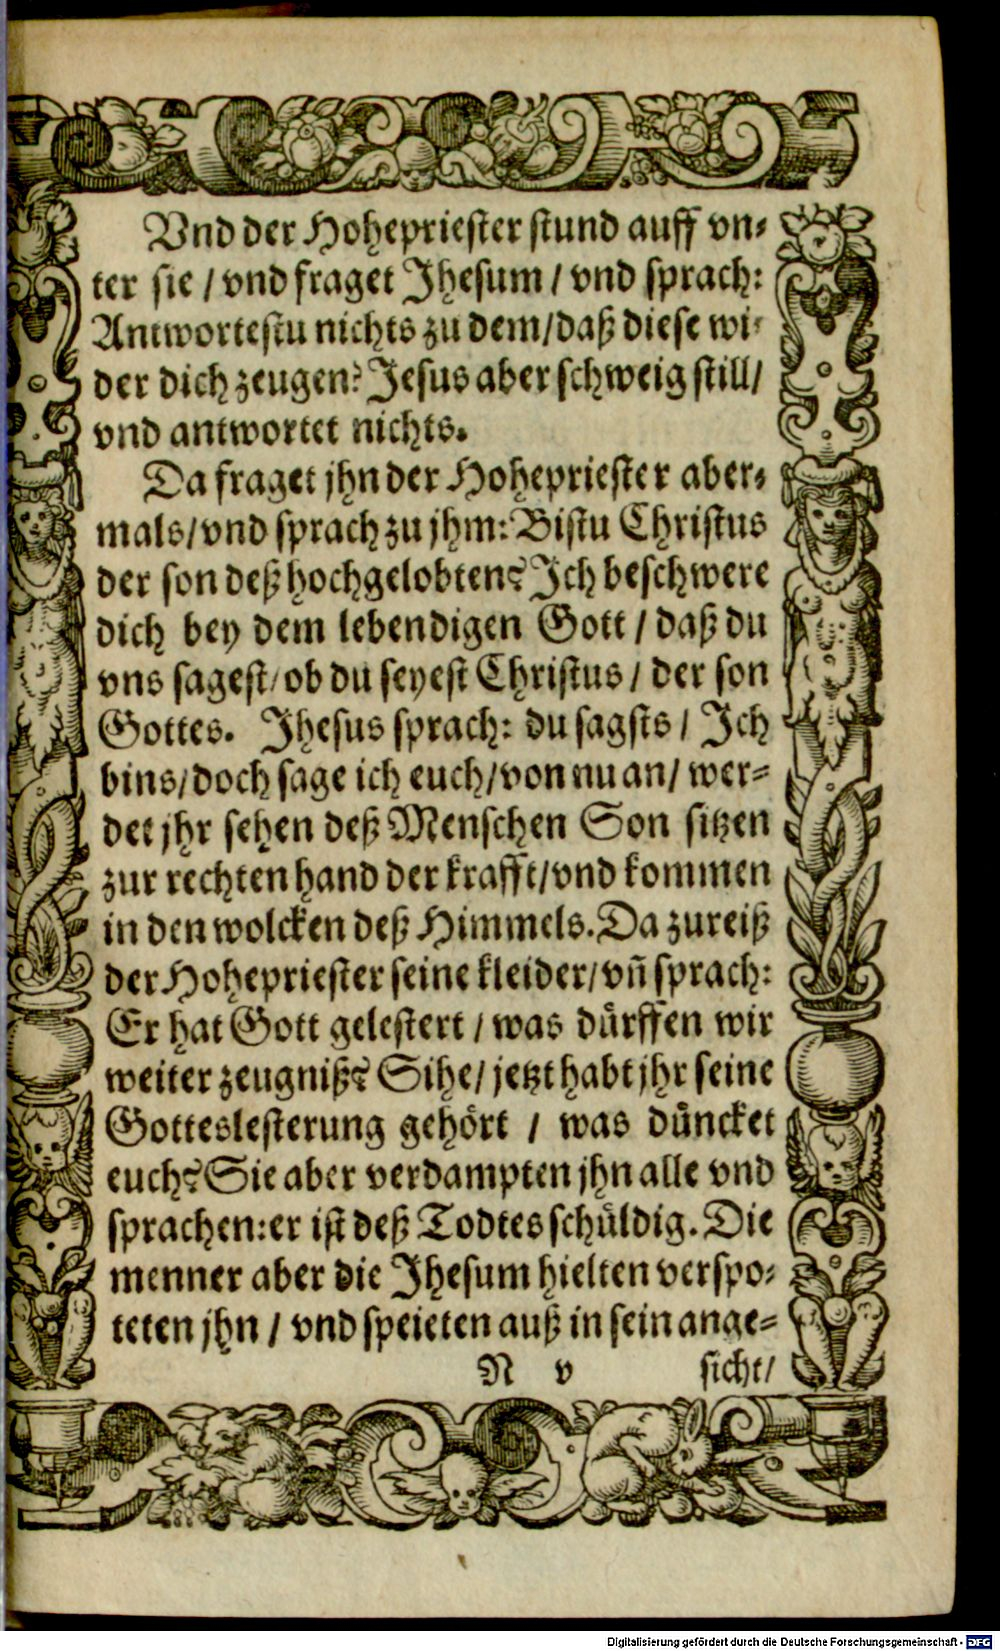 Vnd der Hohepriester stund auff vn-
ter sie / vnd fraget Jhesum / vnd sprach:
Antwortestu nichts zu dem/daß diese wi-
der dich zeugen? Jesus aber schweig still/
vnd antwortet nichts.
Da fraget jhn der Hohepriester aber-
mals/vnd sprach zu jhm: Bistu Christus
der son deß hochgelobten? Ich beschwere
dich bey dem lebendigen Gott / daß du
vns sagest/ob du seyest Christus / der son
Gottes. Jhesus sprach: du sagsts / Ich
bins/doch sage ich euch/von nu an/ wer-
det jhr sehen deß Menschen Son sitzen
zur rechten hand der krafft/vnd kommen
in den wolcken deß Himmels. Da zureiß
der Hohepriester seine kleider/vñ sprach:
Er hat Gott gelestert / was dürffen wir
weiter zeugniß? Sihe/ jetzt habt jhr seine
Gotteslesterung gehört / was düncket
euch? Sie aber verdampten jhn alle vnd
sprachen:er ist deß Todtes schüldig. Die
menner aber die Jhesum hielten verspo-
teten jhn / vnd speieten auß in sein ange-
N v sicht/
Digitalisierung gefördert durch die Deutsche Forschungsgemeinschaft - DFG